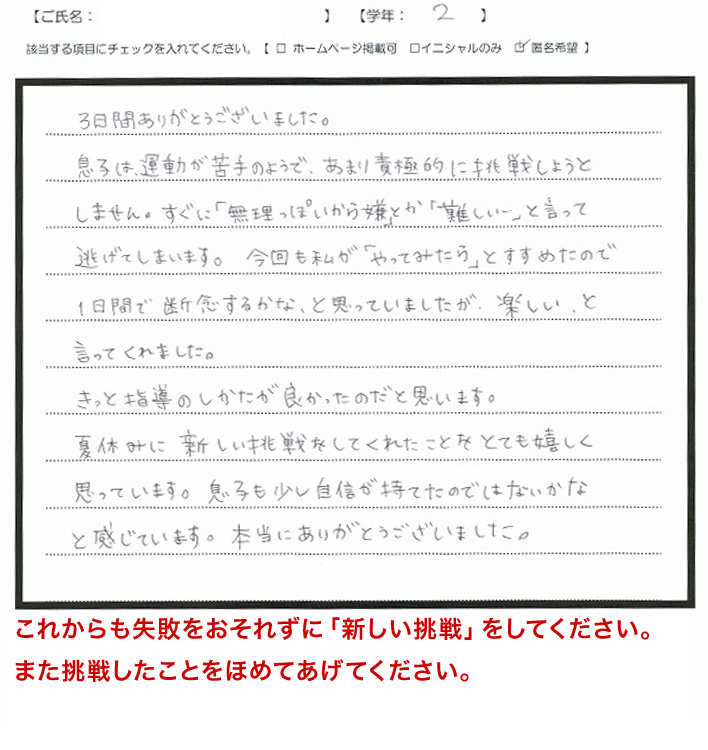 【ご氏名： 】 【学年： 2 】
該当する項目にチェックを入れてください。【 □ ホームページ掲載可 □イニシャルのみ ☑匿名希望 】
3日間ありがとうございました。
息子は、運動が苦手のようで、あまり責極的に挑戦しようと
しません。すぐに「無理っぽいから嫌」とか「難しい〜」と言って
逃げてしまいます。 今回も私が「やってみたら」とすすめたので
1日間で断念するかな、と思っていましたが、楽しい、と
言ってくれました。
きっと指導のしかたが良かったのだと思います。
夏休みに新しい挑戦をしてくれたことをとても嬉しく
思っています。息子も少し自信が持てたのではないかな
と感じています。本当にありがとうございました。
これからも失敗をおそれずに「新しい挑戦」をしてください。
また挑戦したことをほめてあげてください。